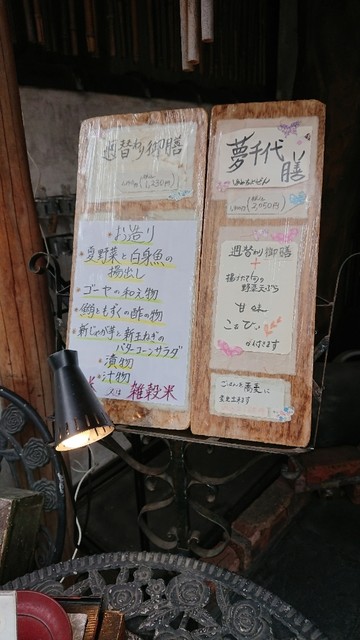 週替わり御膳
(税込 1,230円)
・お造り
・夏野菜と白身魚の
揚出し
・ゴーヤの和え物
・鱧ともずくの酢の物
・新じゃが芋と新玉ねぎの
バターコーンサラダ
・漬物
・汁物
米又は雑穀米
夢千代
膳
ゆめちよぜん
週替わり御膳
+
揚げたての
野菜天ぷら
甘味
こーひー
が付きます
ごはんを蕎麦に
変更出来ます